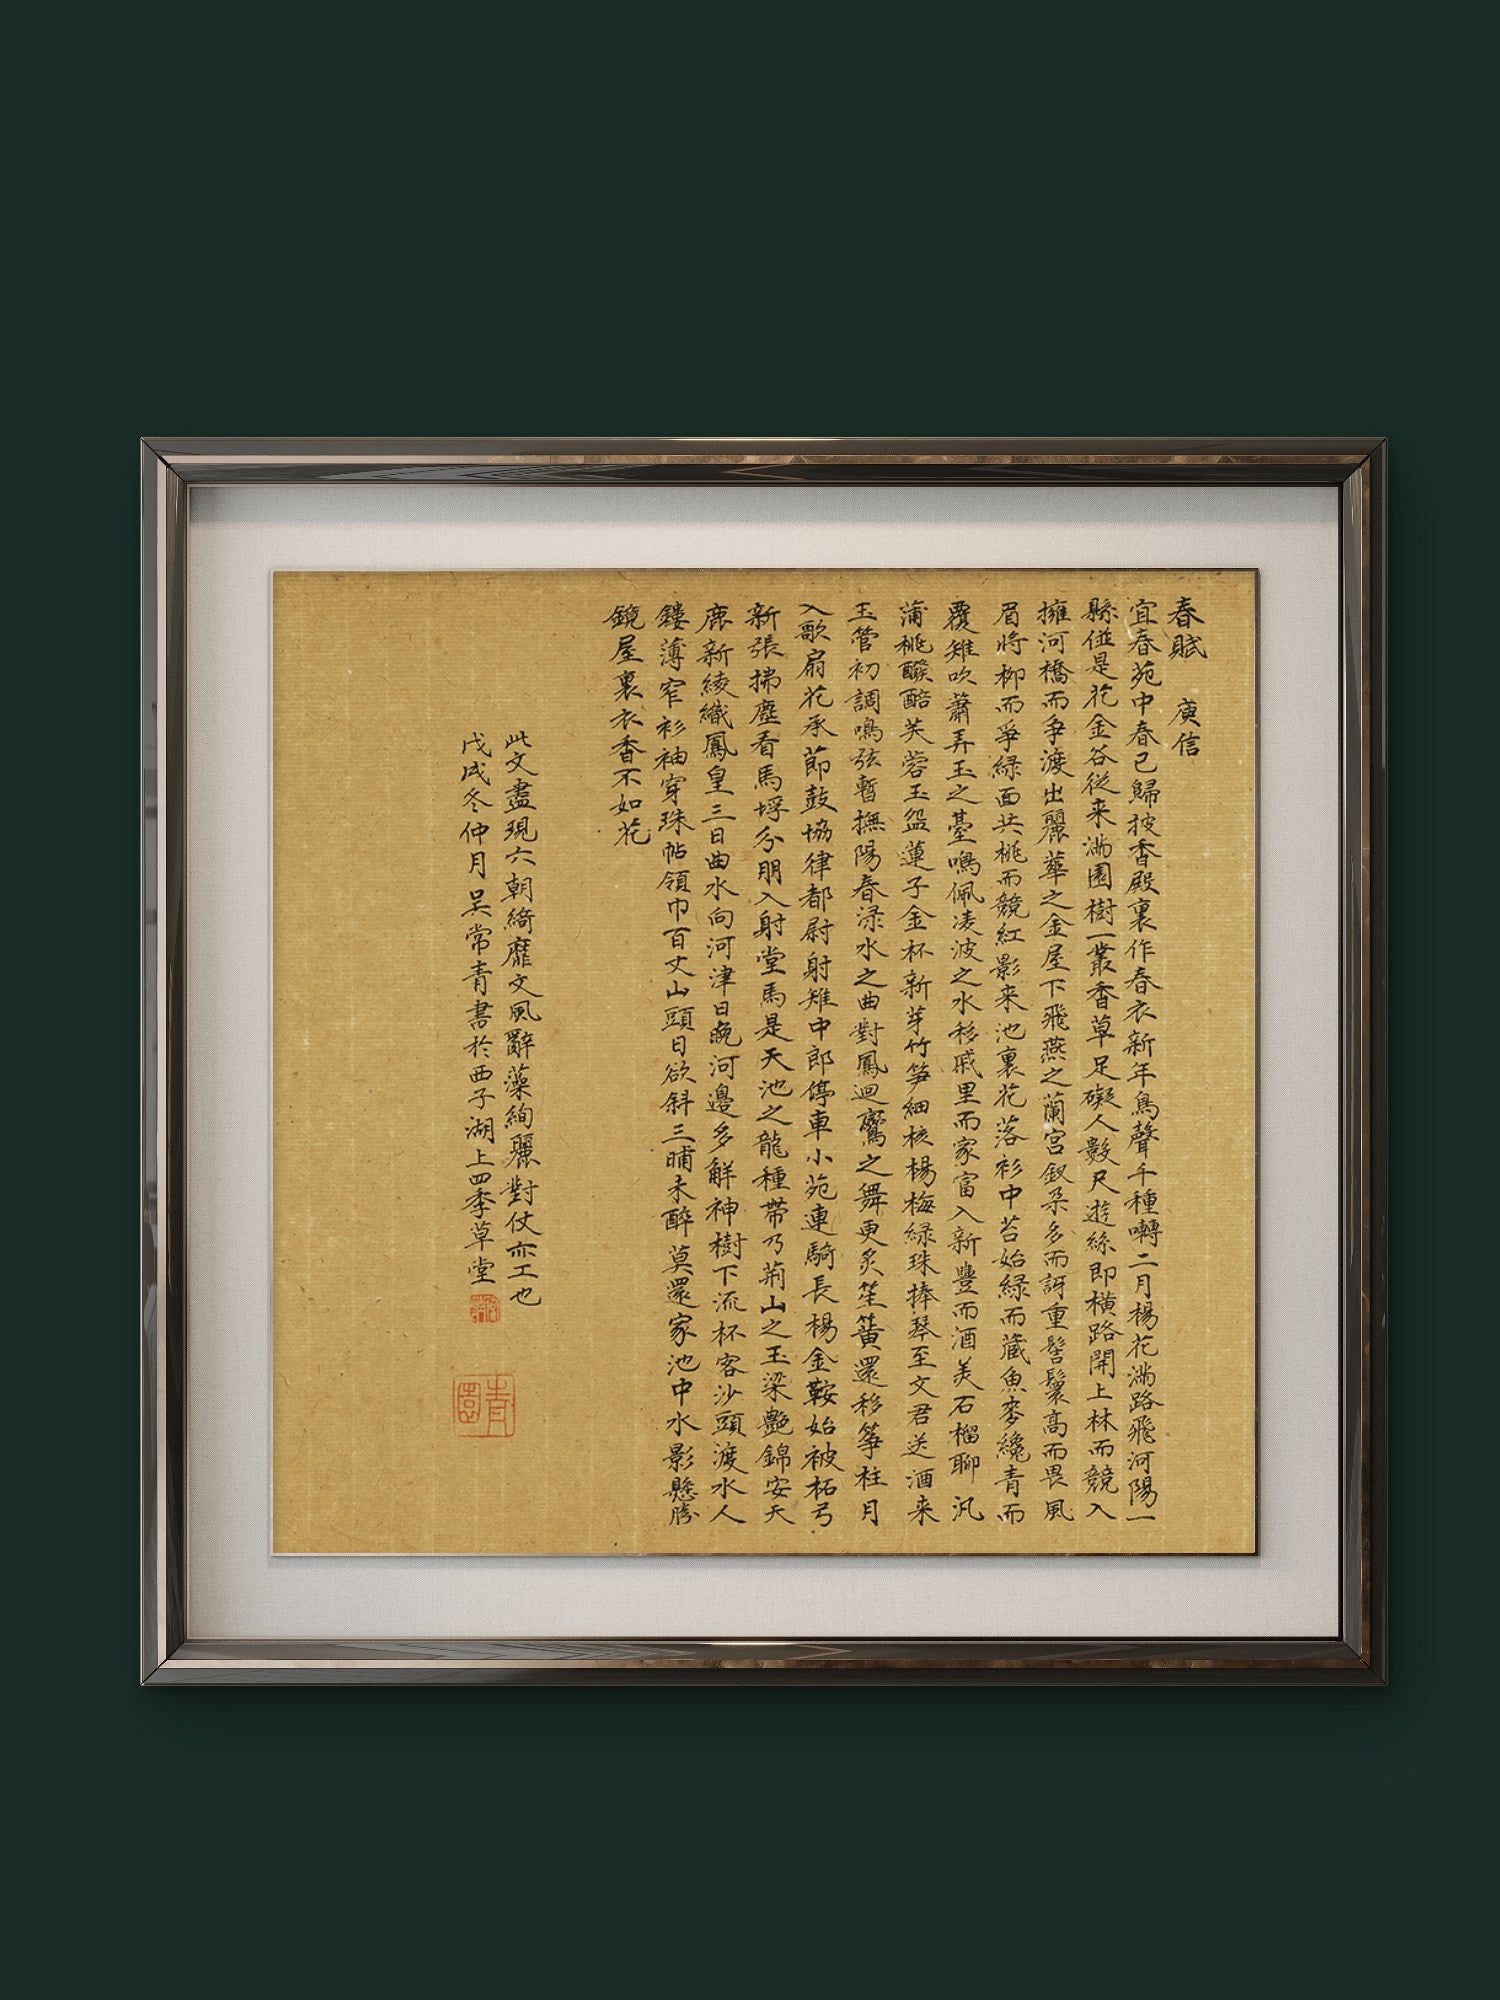 春賦 庾信
宜春苑中春已歸披香殿裏作春衣新年鳥聲千種囀二月楊花滿路飛河陽一
縣倂是花金谷從来滿園樹一叢香草足礙人數尺遊絲即橫路開上林而競入
擁河橋而争渡出麗華之金屋下飛燕之蘭宮釵朶多而訝重髻鬟高而畏風
眉將柳而爭緑面共桃而競紅影来池裏花落衫中苔始緑而藏魚麥纔青而
覆雉吹簫弄玉之臺鳴佩凌波之水移戚里而家富入新豐而酒美石榴聊汎
蒲桃醱醅芙蓉玉盌蓮子金杯新芽竹笋細核楊梅緑珠捧琴至文君送酒来
玉管初調鳴弦暫撫陽春渌水之曲對鳳迴鸞之舞更炙笙簧還移筝柱月
入歌扇花承節鼓協律都尉射雉中郎停車小苑連騎長楊金鞍始被柘弓
新張拂塵看馬埒分朋入射堂馬是天池之龍種帶乃荊山之玉梁艷錦安天
鹿新綾織鳳皇三日曲水向河津日晚河邊多解神樹下流杯客沙頭渡水人
鏤薄窄衫袖穿珠帖領巾百丈山頭日欲斜三晡未醉莫還家池中水影懸勝
鏡屋裏衣香不如花
此文盡現六朝綺靡文風辭藻絢麗對仗亦工也
戊戌冬仲月吴常青書於西子湖上四季草堂